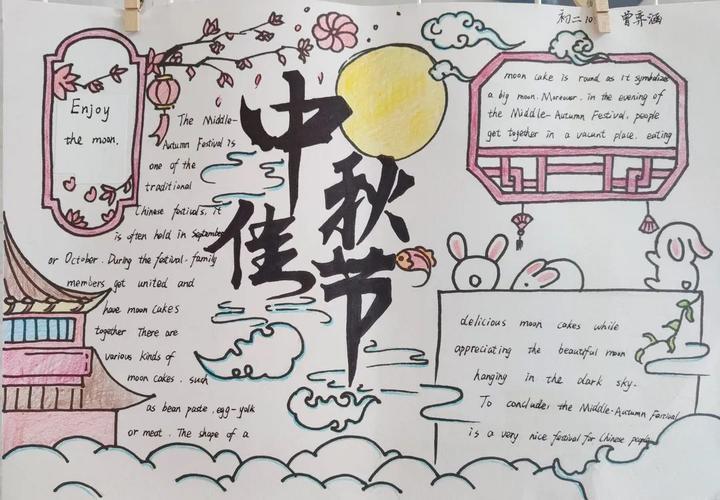 初二10 曾亲涵
Enjoy
the moon.
中
秋
佳
节
The Middle-
Autumn Festival is
one of the
traditional
Chinese festivals, it
is often held in September
or October. During the festival. family
members get united and
have moon cakes
together There are
various kinds of
moon cakes. such
as bean paste, egg-yolk
or meat. The shape of a
moon cake is round as it symbolizes
a big moon. Moreover. in the evening of
the Middle-Autumn Festival, people
get together in a vacant place. eating
delicious moon cakes while
appreciating the beautiful moon
hanging in the dark sky.
To conclude, the Middle-Autumn Festival
is a very nice festival for Chinese people.